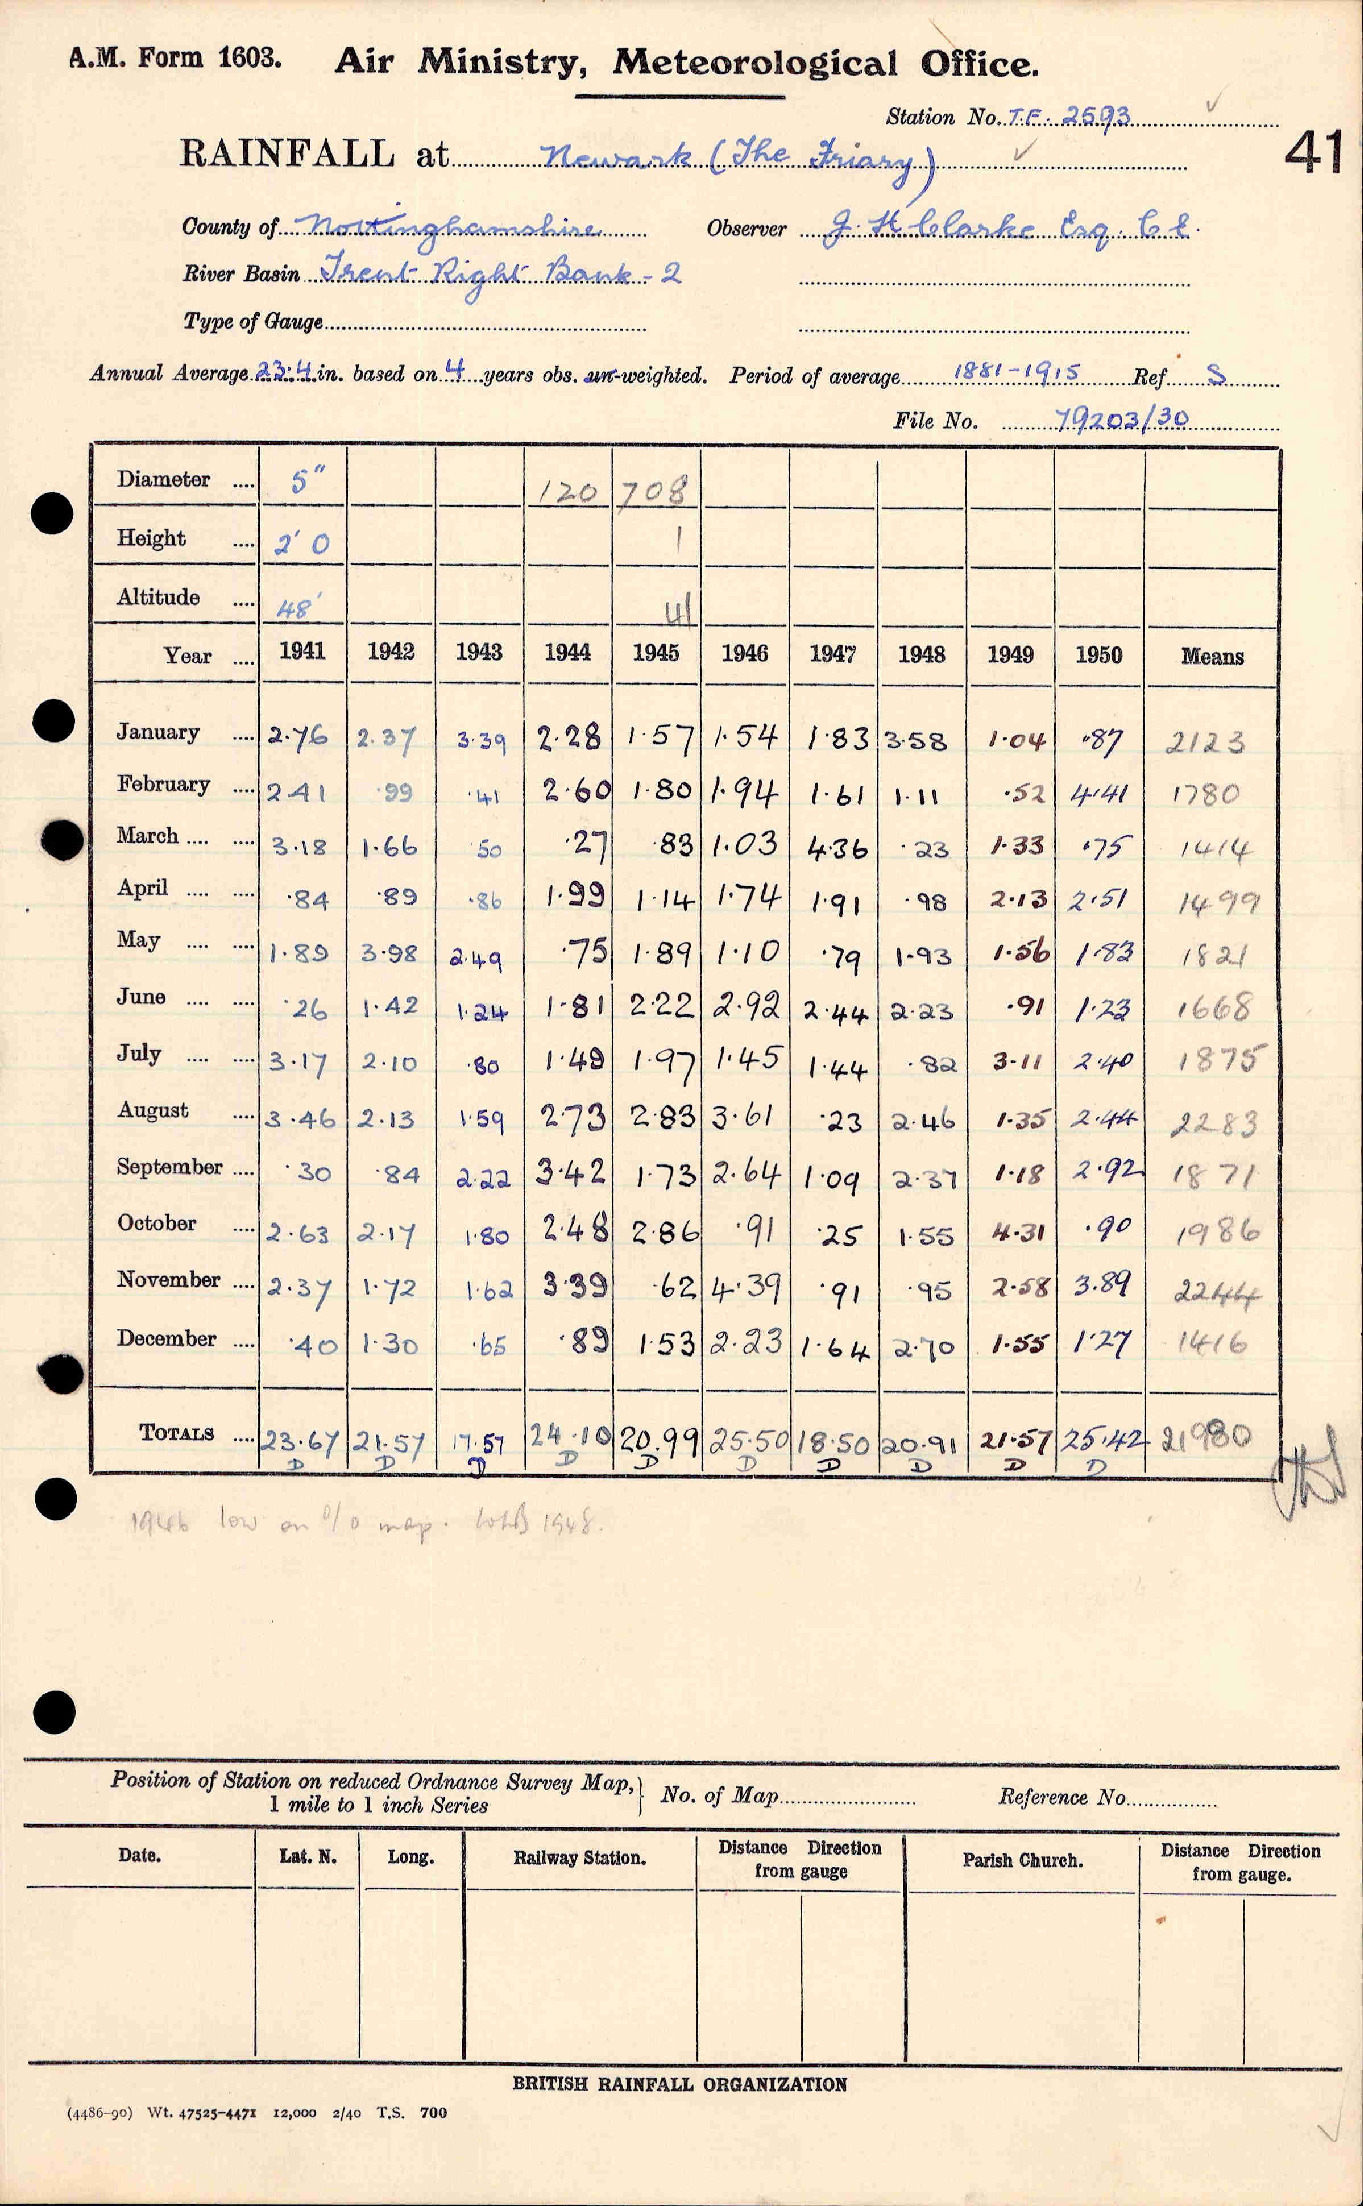 A.M. Form 1603. Air Ministry, Meteorological Office.
Station No. T.F. 2593
RAINFALL at Newark (The Friary) 41
County of Nottinghamshire Observer J. H Clarke Esq. C.E.
River Basin Trent Right Bank - 2
Type of Gauge
Annual Average 23.4 in. based on 4 years obs. un-weighted. Period of average 1881-1915 Ref. S
File No. 79203/30
Diameter .... 5" 120 708
Height .... 2' 0 1
Altitude .... 48' 41
Year .... 1941 1942 1943 1944 1945 1946 1947 1948 1949 1950 Means
January .... 2.76 2.37 3.39 2.28 1.57 1.54 1.83 3.58 1.04 .87 2123
February .... 2.41 .99 .41 2.60 1.80 1.94 1.61 1.11 .52 4.41 1780
March .... .... 3.18 1.66 50 .27 .83 1.03 4.36 .23 1.33 .75 1414
April .... .... .84 .89 .86 1.99 1.14 1.74 1.91 .98 2.13 2.51 1499
May .... .... 1.89 3.98 2.49 .75 1.89 1.10 .79 1.93 1.56 1.83 1821
June .... .... .26 1.42 1.24 1.81 2.22 2.92 2.44 2.23 .91 1.23 1668
July .... .... 3.17 2.10 .80 1.49 1.97 1.45 1.44 .82 3.11 2.40 1875
August .... 3.46 2.13 1.59 2.73 2.83 3.61 .23 2.46 1.35 2.44 2283
September .... .30 .84 2.22 3.42 1.73 2.64 1.09 2.37 1.18 2.92 1871
October .... 2.63 2.17 1.80 2.48 2.86 .91 .25 1.55 4.31 .90 1986
November .... 2.37 1.72 1.62 3.39 .62 4.39 .91 .95 2.58 3.89 2244
December .... .40 1.30 .65 .89 1.53 2.23 1.64 2.70 1.55 1.27 1416
TOTALS .... 23.67 21.57 17.57 24.10 20.99 25.50 18.50 20.91 21.57 25.42 21980
D D D D D D D D D D
1946 low on % map. 1948.
Position of Station on reduced Ordnance Survey Map, } No. of Map Reference No.
1 mile to 1 inch Series
Date. Lat. N. Long. Railway Station. Distance Direction from gauge Parish Church. Distance Direction from gauge.
BRITISH RAINFALL ORGANIZATION
(4486-90) Wt. 47525-4471 12,000 2/40 T.S. 700